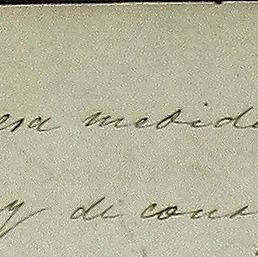 esa medida
y di cons